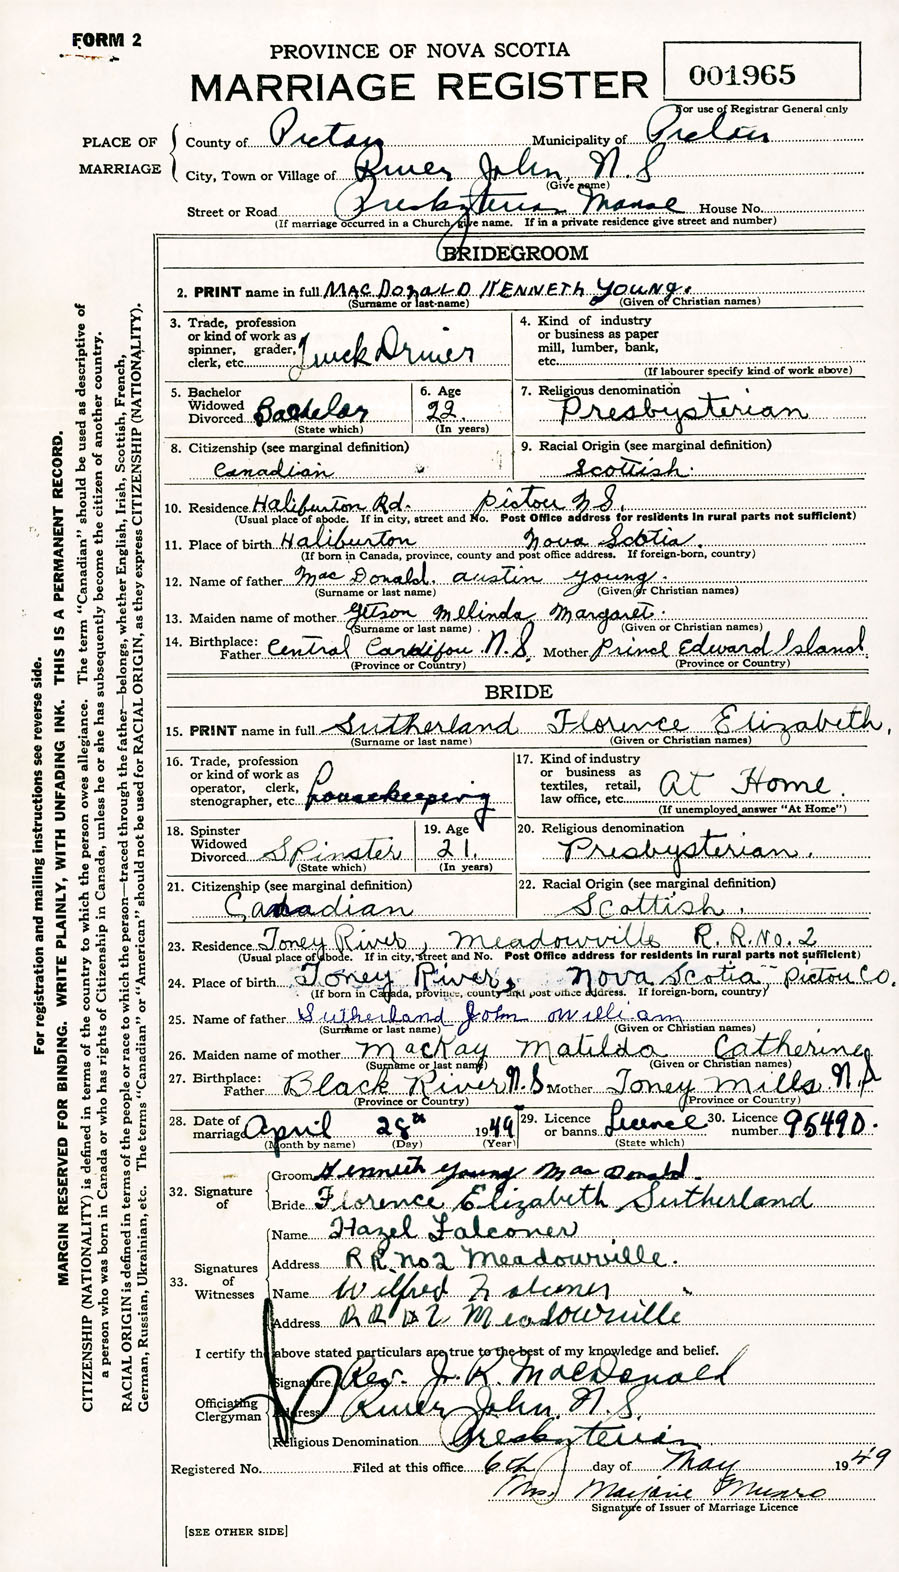 FORM 2
PROVINCE OF NOVA SCOTIA
MARRIAGE REGISTER
001965
For use of Registrar General only
PLACE OF MARRIAGE
County of Pictou Municipality of Pictou
City, Town or Village of River John, N.S
(Give name)
Street or Road Presbyterian Manse House No.
(If marriage occurred in a Church, give name. If in a private residence give street and number)
BRIDEGROOM
2. PRINT name in full MacDonald Kenneth Young.
(Surname or last-name) (Given or Christian names)
3. Trade, profession or kind of work as spinner, grader, clerk, etc. Truck Driver
4. Kind of industry or business as paper mill, lumber, bank, etc.
(If labourer specify kind of work above)
5. Bachelor Widowed Divorced Bachelor
(State which)
6. Age 22.
(In years)
7. Religious denomination Presbysterian
8. Citizenship (see marginal definition) Canadian
9. Racial Origin (see marginal definition) Scottish.
10. Residence Haliburton Rd. Pictou N.S.
(Usual place of abode. If in city, street and No. Post Office address for residents in rural parts not sufficient)
11. Place of birth Haliburton Nova Scotia.
(If born in Canada, province, county and post office address. If foreign-born, country)
12. Name of father MacDonald. austin young.
(Surname or last name) (Given or Christian names)
13. Maiden name of mother Getson Melinda Margaret.
(Surname or last name) (Given or Christian names)
14. Birthplace: Father Central N.S. Mother Prince Edward Island
(Province or Country) (Province or Country)
BRIDE
15. PRINT name in full Sutherland Florence Elizabeth,
(Surname or last name) (Given or Christian names)
16. Trade, profession or kind of work as operator, clerk, stenographer, etc. housekeeping
17. Kind of industry or business as textiles, retail, law office, etc. At Home.
(If unemployed answer "At Home")
18. Spinster Widowed Divorced Spinster
(State which)
19. Age 21.
(In years)
20. Religious denomination Presbysterian.
21. Citizenship (see marginal definition) Canadian
22. Racial Origin (see marginal definition) Scottish.
23. Residence Toney River, Meadowville R.R. No. 2
(Usual place of abode. If in city, street and No. Post Office address for residents in rural parts not sufficient)
24. Place of birth Toney River, Nova Scotia - Pictou Co.
(If born in Canada, province, county and post office address. If foreign-born, country)
25. Name of father Sutherland John William
(Surname or last name) (Given or Christian names)
26. Maiden name of mother MacKay Matilda Catherine
(Surname or last name) (Given or Christian names)
27. Birthplace: Father Black River N.S Mother Toney Mills N.S
(Province or Country) (Province or Country)
28. Date of marriage April 28th 1949
(Month by name) (Day) (Year)
29. Licence or banns Licence
(State which)
30. Licence number 95490.
32. Signature of
Groom Kenneth Young MacDonald.
Bride Florence Elizabeth Sutherland
33. Signatures of Witnesses
Name Hazel Falconer
Address R R. no 2 Meadowville.
Name Wilfred Falconer
Address R R 2 Meadowville
I certify the above stated particulars are true to the best of my knowledge and belief.
Officiating Clergyman
Signature Rev. J. R. MacDonald
Address River John, N.S.
Religious Denomination Presbyterian
Registered No. Filed at this office 6th day of May 1949
Mrs. Marjorie Munro
Signature of Issuer of Marriage Licence
[SEE OTHER SIDE]
For registration and mailing instructions see reverse side.
MARGIN RESERVED FOR BINDING. WRITE PLAINLY, WITH UNFADING INK. THIS IS A PERMANENT RECORD.
CITIZENSHIP (NATIONALITY) is defined in terms of the country to which the person owes allegiance. The term "Canadian" should be used as descriptive of
a person who was born in Canada or who has rights of Citizenship in Canada, unless he or she has subsequently become the citizen of another country.
RACIAL ORIGIN is defined in terms of the people or race to which the person—traced through the father—belongs, whether English, Irish, Scottish, French,
German, Russian, Ukrainian, etc. The terms "Canadian" or "American" should not be used for RACIAL ORIGIN, as they express CITIZENSHIP (NATIONALITY).